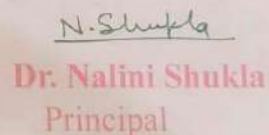 N. Shukla
Dr. Nalini Shukla
Principal